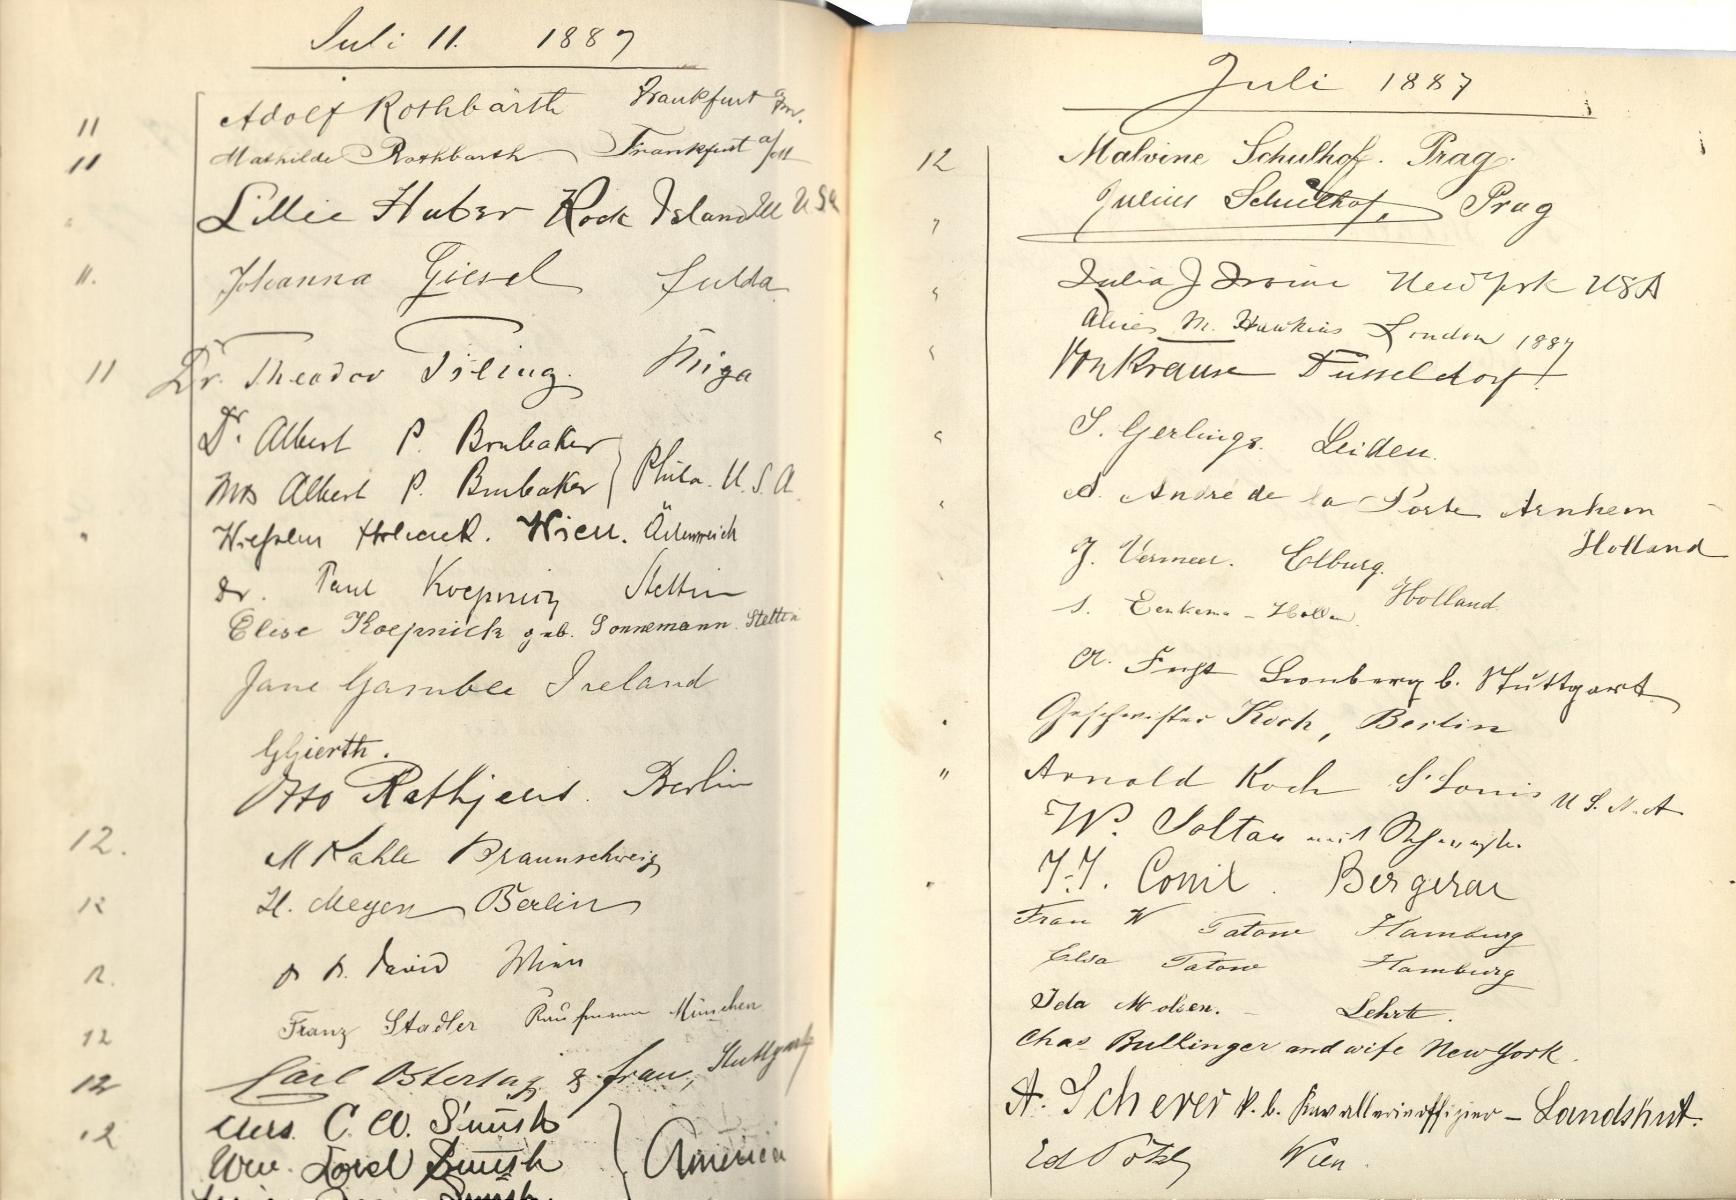 Juli 11. 1887
11 Adolf Rothbarth Frankfurt a/M.
11 Mathilde Rothbarth Frankfurt a/M
Lillie Huber Rock Island Ill USA
11. Johanna Giesel Fulda
11 Dr. Theodor Tiling. Riga
Dr. Albert P. Brubaker
Mrs Albert P. Brubaker Phila. U.S.A.
Wien.
Dr. Paul Koepnick Stettin
Elise Koepnick geb. Sonnemann. Stettin
Jane Gamble Ireland
GGierth.
Otto Rathjens. Berlin
12. M Kahle Braunschweig
12 H. Meyer Berlin
12. David Wien
12 Franz Stadler Kaufmann München
12 Carl Ostertag & Frau, Stuttgart
12 Mrs. C. W.
Wm. America
Juli 1887
12 Malvine Schulhof. Prag.
" Julius Schulhof, Prag
" Julia J Irvine New York USA
" Alice M. Hawkins London 1887
von Krause Düsseldorf
" S. Gerlings. Leiden.
" A. André de la Porte Arnhem
Holland
J. Vermeer. Elburg.
Holland.
A. Leonberg b. Stuttgart
Geschwister Koch, Berlin
" Arnold Koch St Louis U.S.N.A
W. Soltau mit
J.J. Conil. Bergerac
Frau W Tatow Hamburg
Elsa Tatow Hamburg
Ida Molsen. - Lehrte.
Chas Bullinger and wife New York.
A. Scherer k. b. Kavallerieoffizier - Landshut.
Ed Pötzl Wien.